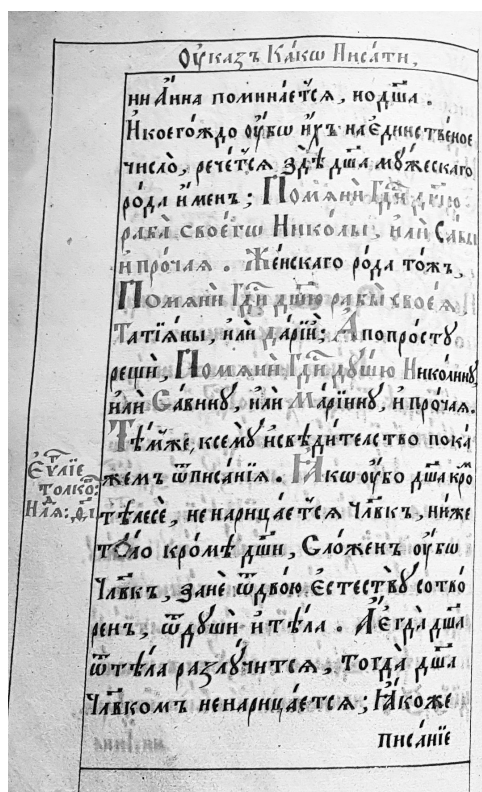 Оу҆каз̾ Ка́кѡ Писа́ти,
ни А҆́нна помина́етсѧ, но дш҃а .
Н҆коего́ждо оу҆́бѡ и҆́хъ на є҆ди́нственое
число̀, рече́тсѧ здѣ̀ дш҃а мꙋ́жескаго
ро́да и҆ме́нъ; Помѧнѝ Гдⷭ҇и дш҃ꙋ
раба̀ своегѡ̀ Нико́лы, и҆лѝ Са́вы
и҆ про́чаѧ . Же́нскаго ро́да то́жъ,
Помѧнѝ Гдⷭ҇и дш҃ꙋ рабы̀ своеѧ̀
Татїѧ́ны, и҆лѝ да́рїи; А҆ попро́стꙋ
рещѝ, Помѧнѝ Гдⷭ҇и дꙋ́шꙋ Нико́линꙋ,
и҆лѝ Са́винꙋ, и҆лѝ Марі́инꙋ, и҆ про́чаѧ.
Тѣ́мже, ксемꙋ̀ и҆ свѣди́телство пока́
жемъ ѿ писа́нїѧ . Ꙗ҆́кѡ оу҆́бо дш҃а кромѣ
тѣлесѐ, не нарица́етсѧ Чл҃вкъ, ни́же
тѣ́ло кромѣ̀ дш҃и, Сложе́нъ оу҆́бѡ
Чл҃вкъ, занѐ ѿ двою̀ є҆стествꙋ̀ сотво
ре́нъ, ѿ дꙋшѝ и҆ тѣ́ла . А҆ є҆гда̀ дш҃а
ѿ тѣ́ла разлꙋчи́тсѧ, тогда̀ дш҃а
Чл҃вкомъ не нарица́етсѧ; Ꙗ҆́коже
писа́нїе
Єѵⷢ҇лїе
толко́: